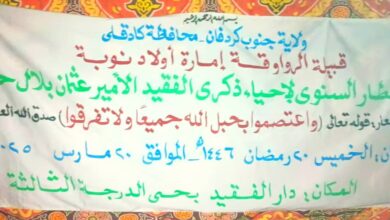 بسم الله الرحمن الرحيم
ولاية جنوب كردفان - محافظة كادقلي
قبيلة الرواوقة إمارة أولاد نوبة
طار السنوي لإحياء ذكرى الفقيد الأمير عثمان بلال ح
عار، قوله تعالى (واعتصموا بحبل الله جميعاً ولا تفرقوا) صدق الله الع
ن: الخميس ٢٠ رمضان ١٤٤٦هـ الموافق ٢٠ مارس ٢٠٢٥
المكان: دار الفقيد بحى الدرجة الثالثة